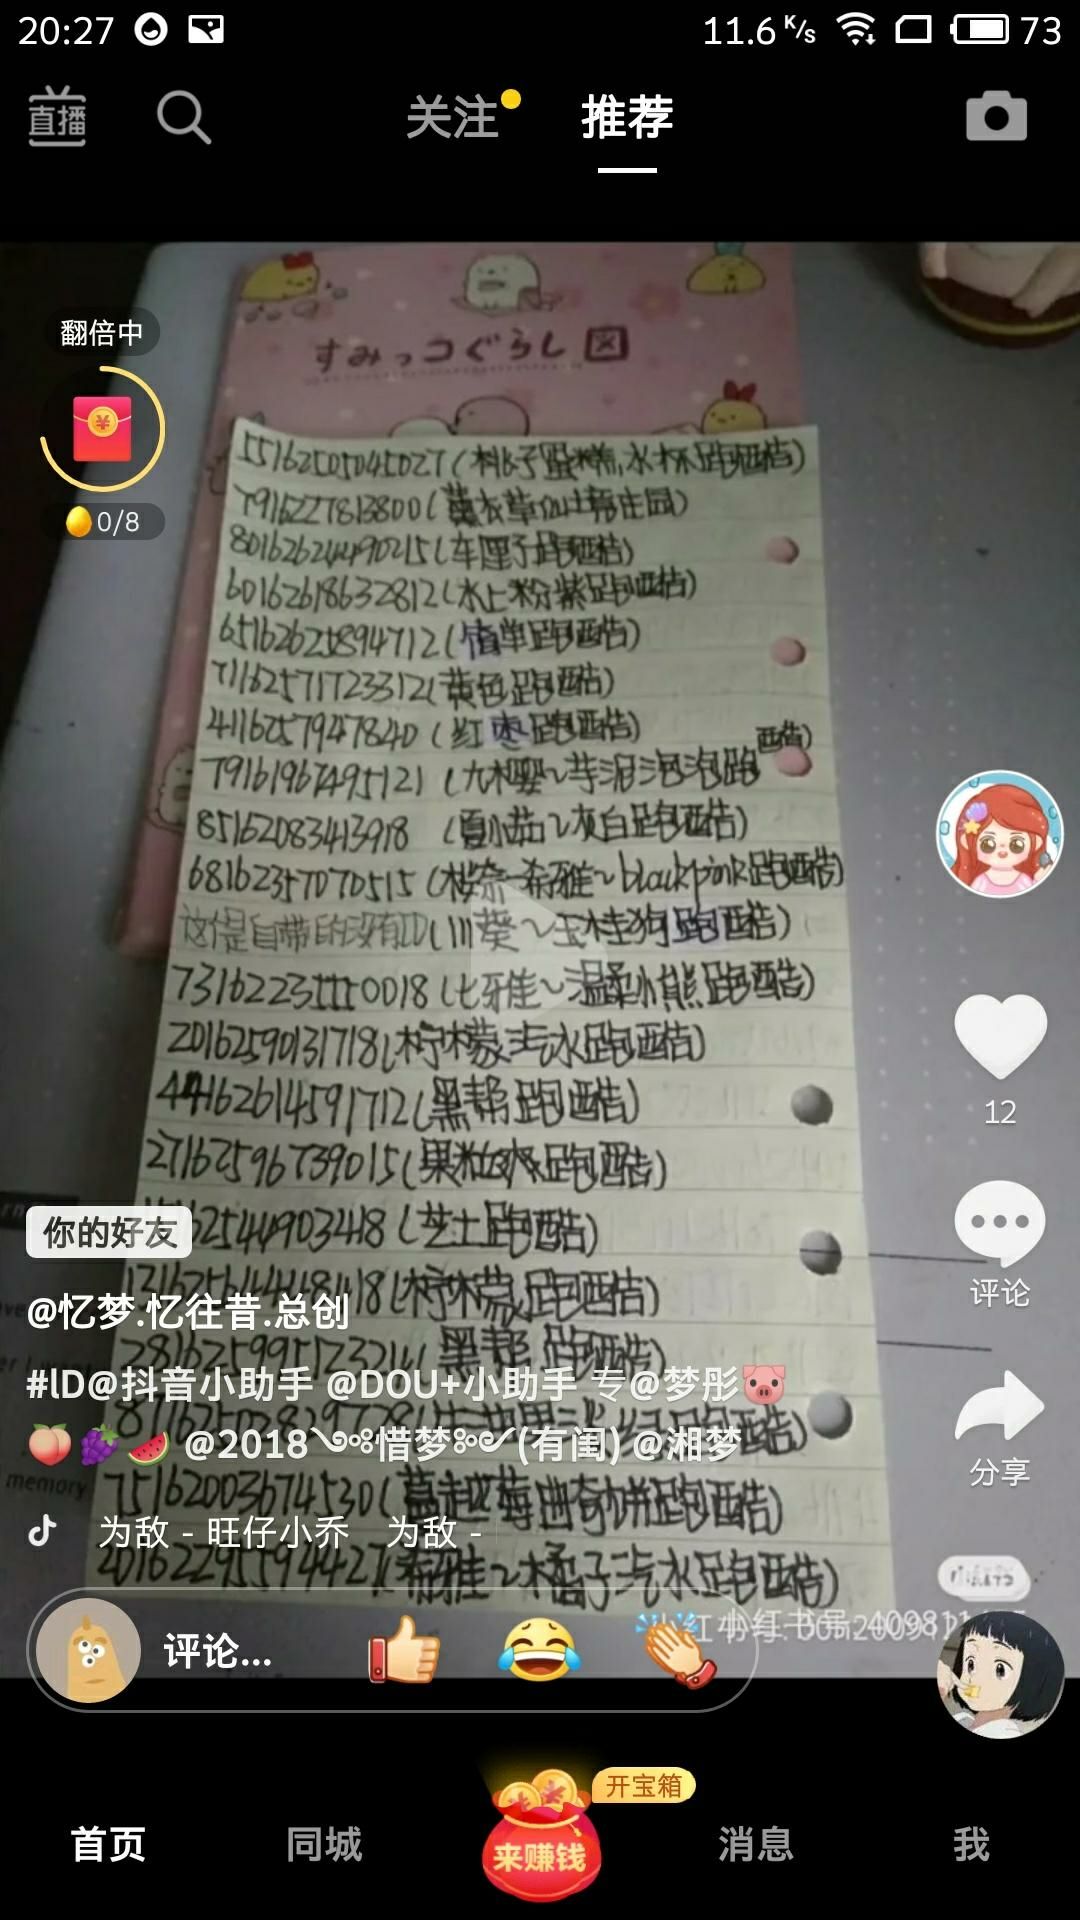 20:27 11.6 K/s 73
直播 关注 推荐
翻倍中
0/8
すみっコぐらし 図
55162505045027(桃子蛋糕,水杯跑酷)
7916227813800(薰衣草仙境庄园)
80162624490215(车厘子跑酷)
6016261863281 2(水上粉紫跑酷)
6516262589471 2(菜单跑酷)
7116257172331 2(黄色跑酷)
411625794784 0(红枣跑酷)
7916196749512 1(九樱~芋泥泡泡跑酷)
85162083413918(夏小茹~灰白跑酷)
68162357070515(樱奈-希雅~blackpink跑酷)
这个是自带的没有ID(川葵~玉桂狗跑酷)
(七雅~温柔小熊跑酷)
20162590131718(柠檬汽水跑酷)
44162614591712(黑帮跑酷)
27162596739015(果粒水跑酷)
(芝士跑酷)
黑帮跑酷)
75162003674530(蔓越莓曲奇饼跑酷)
20162295594427(希雅~橘子汽水跑酷)
12
评论
分享
你的好友
@忆梦.忆往昔.总创
#ID@抖音小助手 @DOU+小助手 专@梦彤🐷
🍑🍇🍉 @2018惜梦(有闺) @湘梦
为敌 - 旺仔小乔 为敌 -
评论...
开宝箱
首页 同城 来赚钱 消息 我